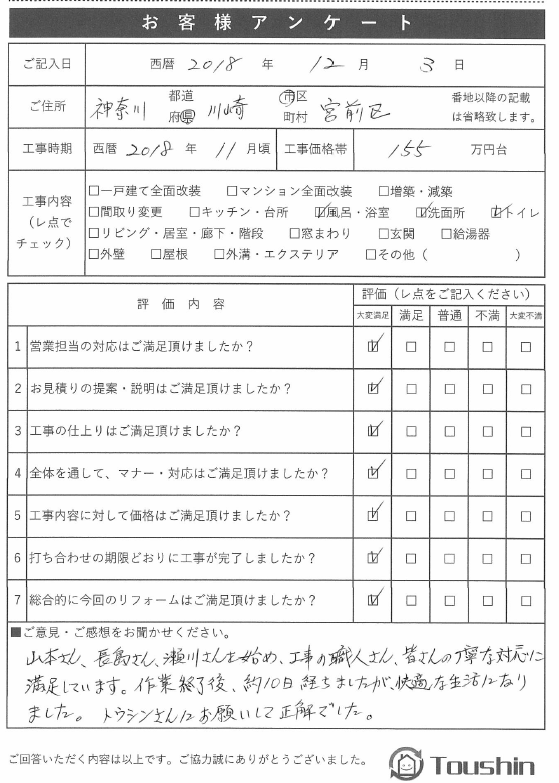 お客様アンケート
ご記入日 西暦 2018 年 12 月 3 日
ご住所 神奈川 都道府県 川崎 市区町村 宮前区 番地以降の記載は省略致します。
工事時期 西暦 2018 年 11 月頃 工事価格帯 155 万円台
工事内容（レ点でチェック）
□一戸建て全面改装 □マンション全面改装 □増築・減築
□間取り変更 □キッチン・台所 ☑風呂・浴室 ☑洗面所 ☑トイレ
□リビング・居室・廊下・階段 □窓まわり □玄関 □給湯器
□外壁 □屋根 □外溝・エクステリア □その他（ ）
評価内容 評価（レ点をご記入ください）
大変満足 満足 普通 不満 大変不満
1 営業担当の対応はご満足頂けましたか？ ☑ □ □ □ □
2 お見積りの提案・説明はご満足頂けましたか？ ☑ □ □ □ □
3 工事の仕上りはご満足頂けましたか？ ☑ □ □ □ □
4 全体を通して、マナー・対応はご満足頂けましたか？ ☑ □ □ □ □
5 工事内容に対して価格はご満足頂けましたか？ ☑ □ □ □ □
6 打ち合わせの期限どおりに工事が完了しましたか？ ☑ □ □ □ □
7 総合的に今回のリフォームはご満足頂けましたか？ ☑ □ □ □ □
■ご意見・ご感想をお聞かせください。
山本さん、長島さん、瀬川さんを始め、工事の職人さん、皆さんの丁寧な対応に
満足しています。作業終了後、約10日経ちましたが、快適な生活になり
ました。トウシンさんにお願いして正解でした。
ご回答いただく内容は以上です。ご協力誠にありがとうございました。
Toushin